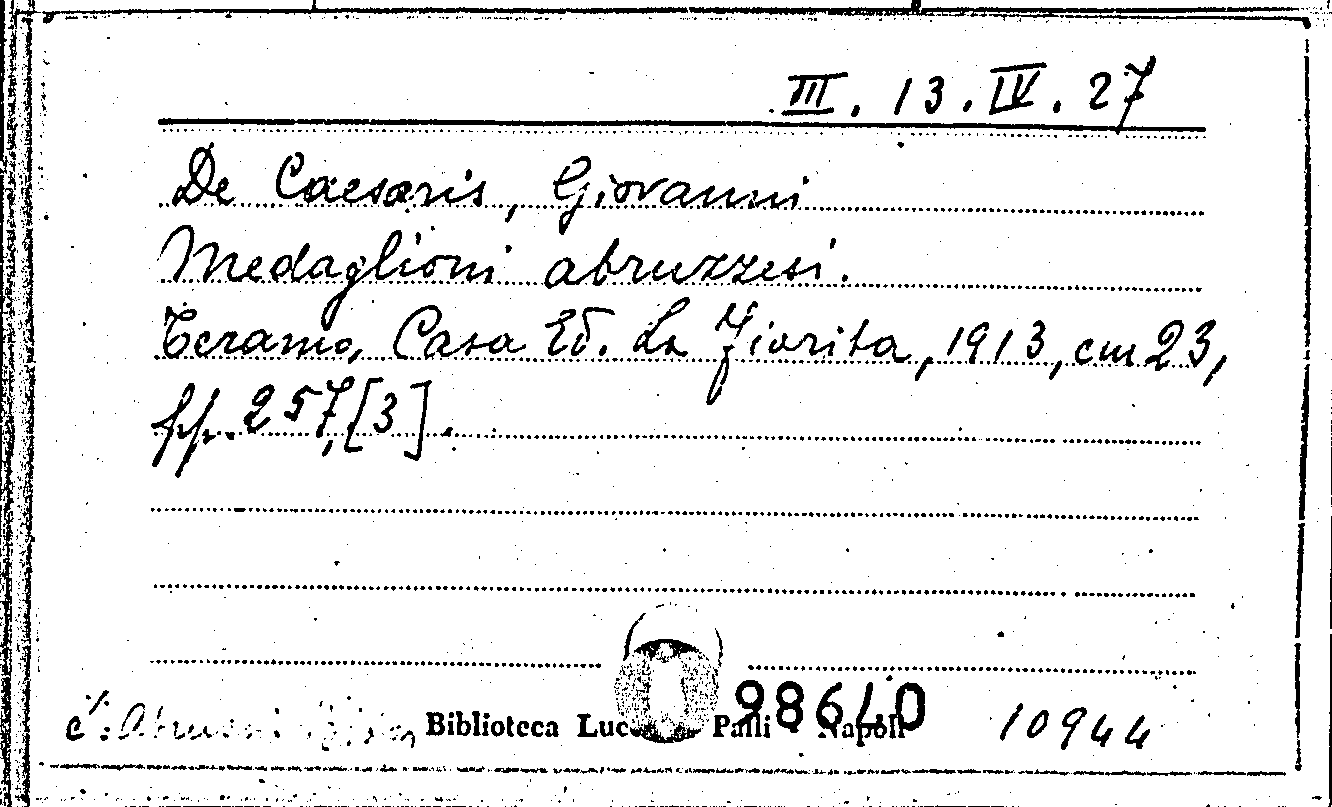 III. 13. IV. 27
De Caesaris, Giovanni
Medaglioni abruzzesi.
Teramo, Casa Ed. La Fiorita, 1913, cm 23,
pp. 257, [3].
Biblioteca Palli Napoli
98640
10944